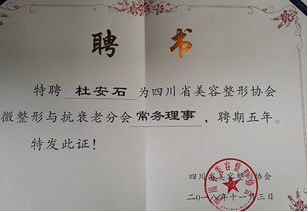 聘书
特聘 杜安石 为四川省美容整形协会
微整形与抗衰老分会常务理事，聘期五年。
特发此证！
四川省美容整形协会
二〇一八年十一月三日